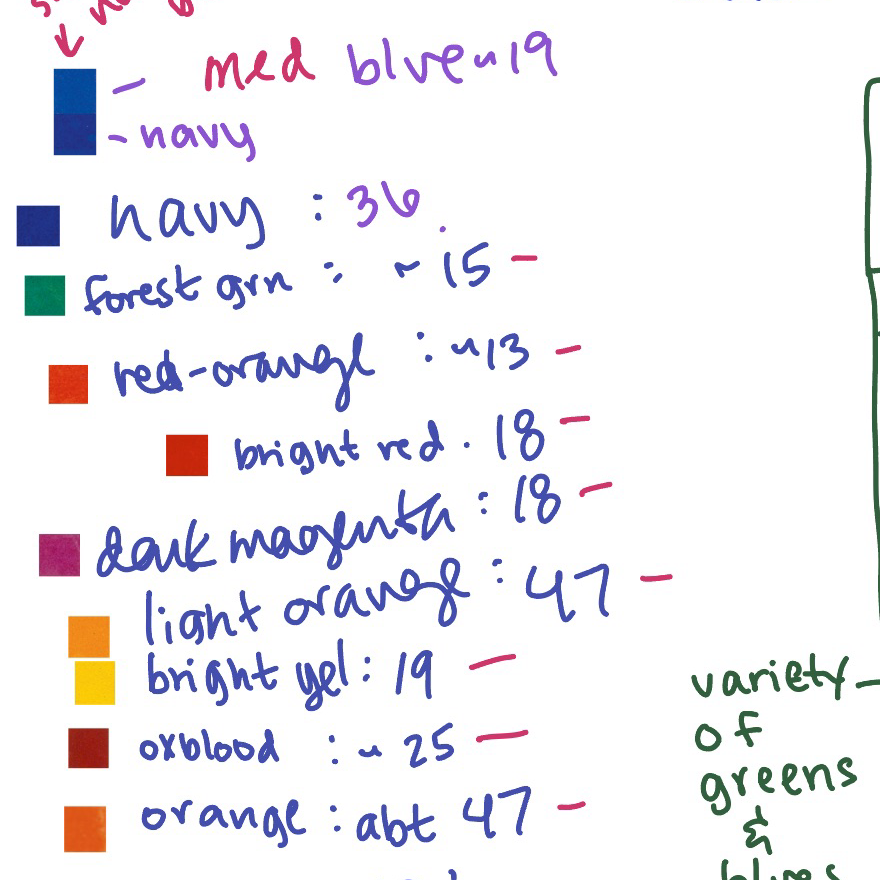 med blue ~19
- navy
navy : 36
forest grn : ~ 15 -
red-orange : ~13 -
bright red . 18 -
dark magenta : 18 -
light orange : 47 -
bright yel : 19 -
oxblood : ~ 25 -
orange : abt 47 -
variety
of
greens
&
blues